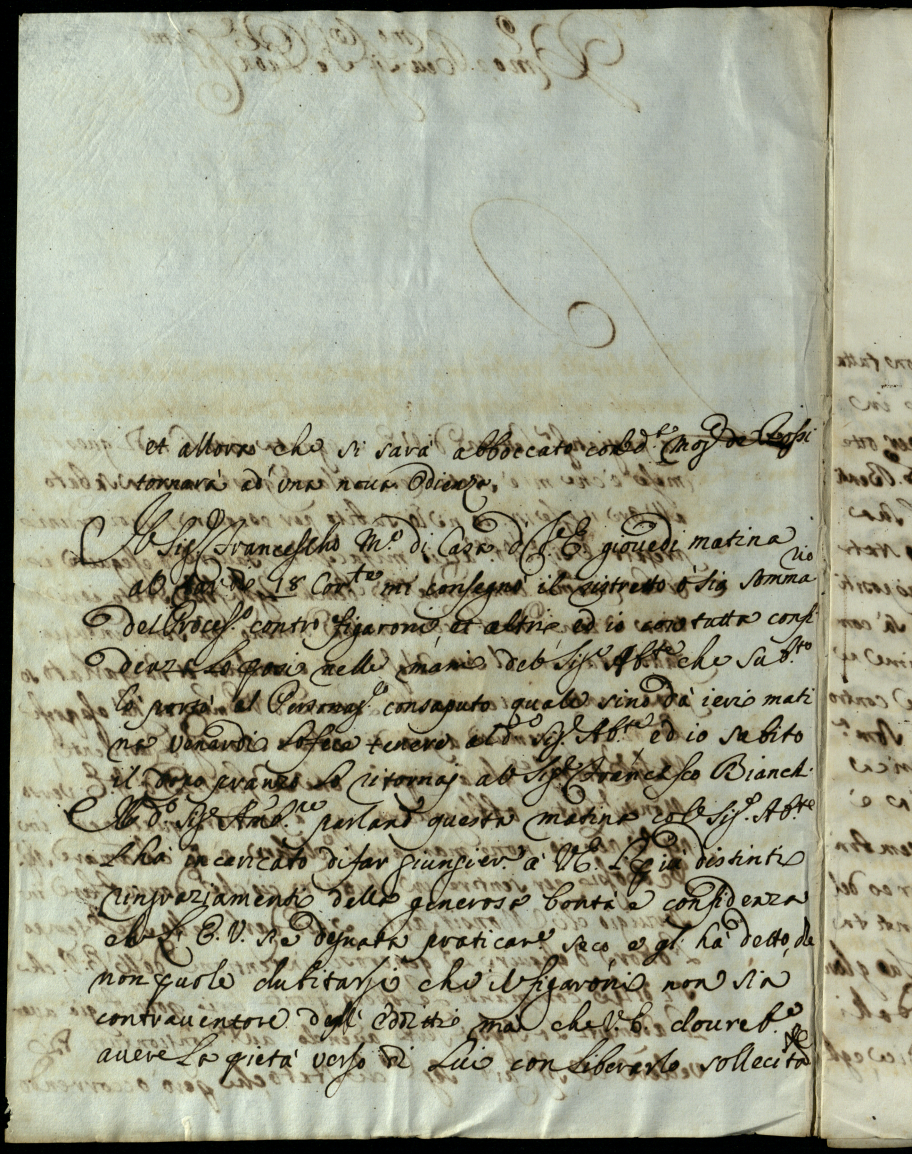 et allora che si sarà abboccato col d.º Mons.r de Rossi
tornarà ad una nova Odienza.
Il Sig.r Francescho M.º di Casa di S. E. giovedì matina
al 18 Cor.te mi consegnò il ristretto ò sia somma
rio
del Process.º contro figaroni et altri ed io con tutta confi
denza lo posi nelle mani del Sig.r Ab.te che sub.to
lo portò al Personag.º consaputo quale sino dà ieri mati
na venardi lo fece tenere al d.º Sig.r Ab.te ed io subito
il dopo pranzo lo ritornaj al Sig.r Francesco Bianchi
Il d.º Sig.r Amb.re parland.º questa matina col Sig.r Ab.te
l'ha incaricato di far giungier.e à V.E. distinti
ringraziamenti della generosa bontà e confidenza
che l'E.V. si è degnata praticar.e seco e gl'hà detto, che
non puole dubitarsi che il figaroni non sia
contraventore degl'Editti ma che V.E. dourebb.e
avere la pietà verso di Lui con liberarlo sollecita